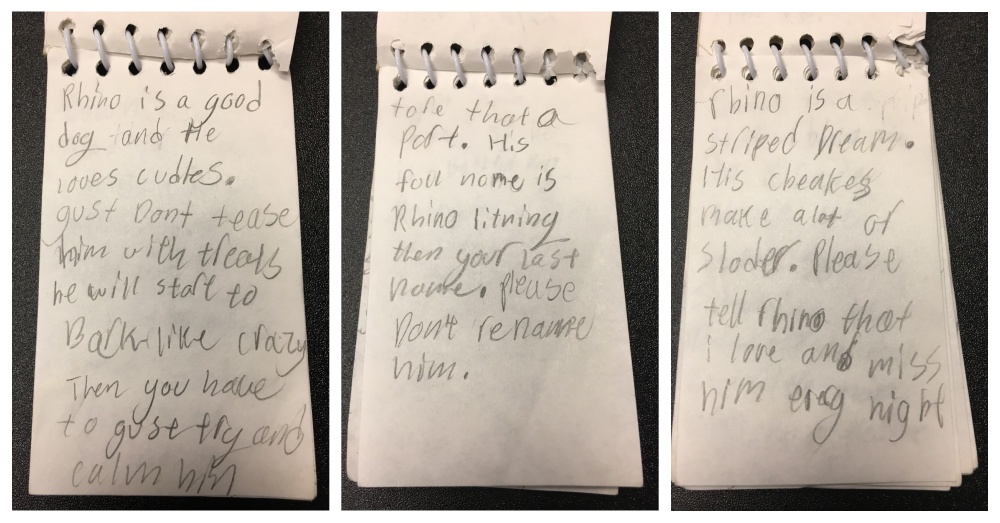 Rhino is a good
dog and He
loves cudles.
gust Dont tease
him with treats
he will start to
Bark like crazy
Then you have
to guse try and
calm him
tore that a
Part. His
foul name is
Rhino litning
then your last
name. please
Don't rename
him.
rhino is a
striped Dream.
His cheakes
make alot of
sloder. Please
tell rhino that
i love and miss
him erey night